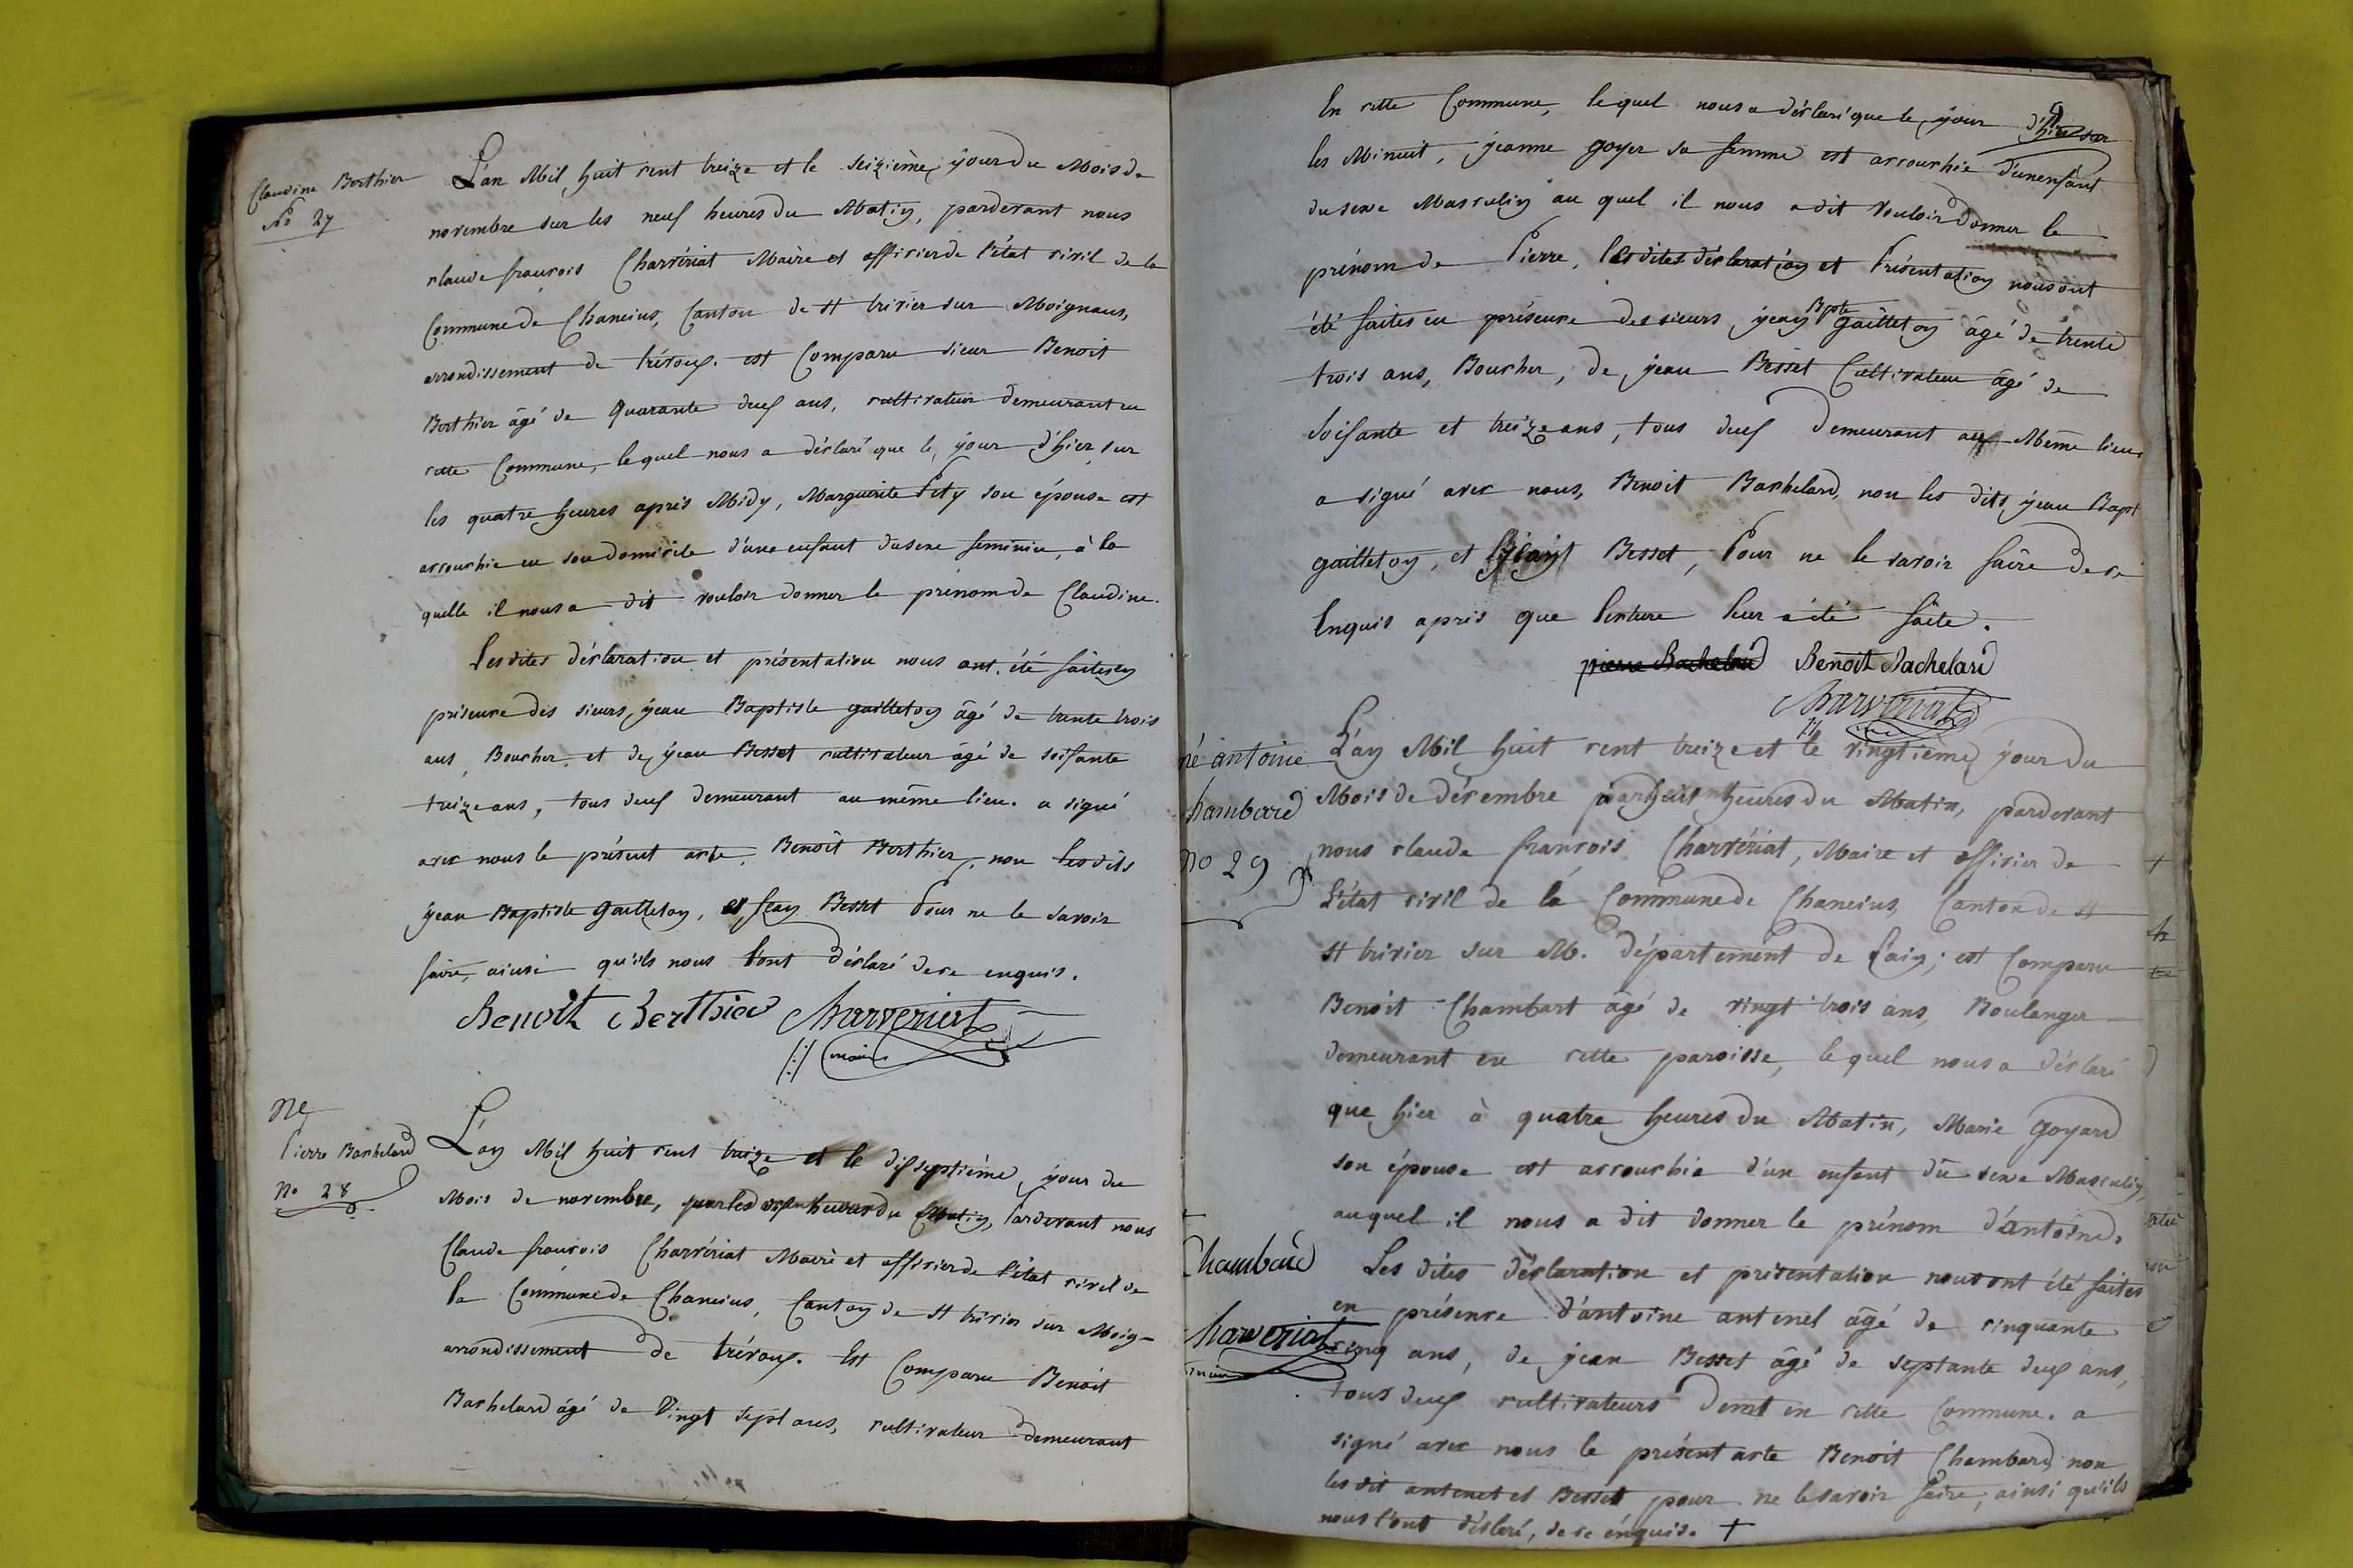 Claudine Berthier
N° 27
L'an Mil huit cent treize et le seizième jour du Mois de
novembre sur les neuf heures du Matin, pardevant nous
claude francois Charvériat Maire et officier de l'état civil de la
Commune de Chaneins, Canton de st trivier sur Moignans,
arrondissement de trévoux. est Comparu sieur Benoit
Berthier âgé de Quarante deux ans, cultivateur demeurant en
cette Commune, lequel nous a déclaré que le jour d'hier sur
les quatre heures après Midy, Marguerite Péty son épouse est
accouchée en son domicile d'une enfant du sexe feminin, à la
quelle il nous a dit vouloir donner le prénom de Claudine.
Les dites déclaration et présentation nous ont été faites en
présence des sieurs, jean Baptiste gailleton âgé de trante trois
ans, Boucher, et de jean Besset cultivateur âgé de soisante
treize ans, tous deux demeurant au même lieu. a signé
avec nous le présent acte, Benoît Berthier, non les dits
jean Baptiste Gailleton, et jean Besset Pour ne le savoir
faire, ainsi qu'ils nous l'ont déclaré de ce enquis.
Benoit Berthier Charveriat
maire
Né
Pierre Bachelard
N° 28
L'an Mil huit cent treize et le dixseptième jour du
Mois de novembre, heures du Matin, Pardevant nous
Claude francois Charvériat Maire et officier de l'état civil de
la Commune de Chaneins, Canton de st trivier sur Moig-
arrondissement de trévoux. Est Comparu Benoit
Bachelard âgé de Vingt sept ans, cultivateur demeurant
En cette Commune, lequel nous a déclaré que le jour d'hier sur
les Minuit, jeanne goyer sa femme est accouchée d'un enfant
du sexe Masculin au quel il nous a dit vouloir donner le
prénom de Pierre, les dites déclaration et Présentation nous ont
été faites en présence des sieurs jean Bpte gailleton âgé de trente
trois ans, Boucher, de jean Besset Cultivateur âgé de
Soisante et treize ans, tous deux demeurant au Même lieu.
a signé avec nous, Benoit Bachelard, non les dits jean Bapt
gailleton, et jean Besset, Pour ne le savoir faire de ce
Enquis après que lecture leur a été faite.
pierre Bachelard Benoit Bachelard
Charveriat
né antoine
Chambard
No 29
L'an Mil huit cent treize et le vingtième jour du
Mois de décembre heures du Matin, pardevant
nous claude francois Charvériat, Maire et officier de
L'état civil de la Commune de Chaneins Canton de st
st trivier sur M. département de l'ain; est Comparu
Benoit Chambart âgé de vingt trois ans, Boulanger
demeurant en cette paroisse, lequel nous a déclaré
que hier à quatre heures du Matin, Marie Goyard
son épouse est accouchée d'un enfant du sexe Masculin,
auquel il nous a dit donner le prénom d'antoine.
Les dites déclaration et présentation nous ont été faites
en présence d'antoine antenel âgé de cinquante
cinq ans, de jean Besset âgé de septante deux ans,
tous deux cultivateurs demt en cette Commune. a
signé avec nous le présent acte Benoit Chambard non
les dit antenet et Besset pour ne le savoir faire, ainsi qu'ils
nous l'ont déclaré, de ce enquis. +
Chambard
Charveriat
maire